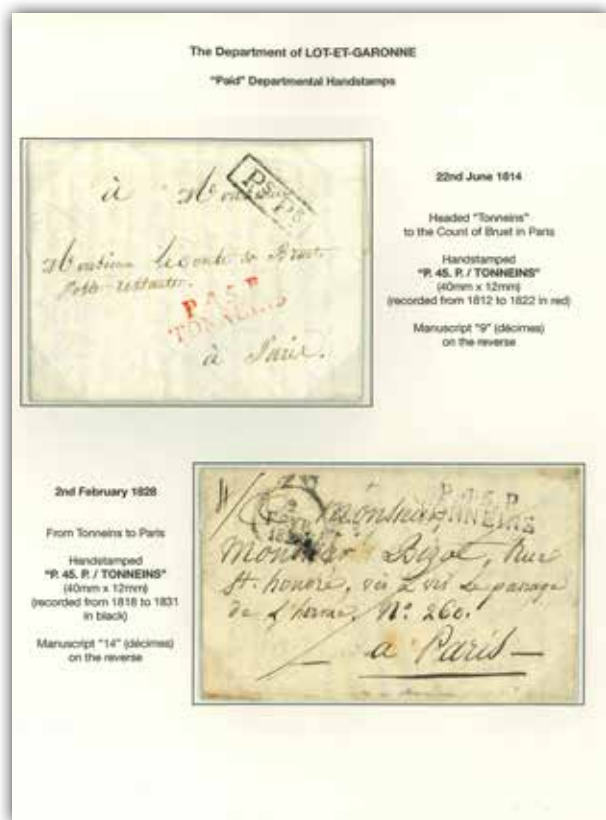 The Department of LOT-ET-GARONNE
"Paid" Departmental Handstamps
à Mons
P.s P.s
Monsieur le Comte de Bruet
Poste-restante.
P. 45. P.
TONNEINS
à Paris.
22nd June 1814
Headed "Tonneins"
to the Count of Bruet in Paris
Handstamped
"P. 45. P. / TONNEINS"
(40mm x 12mm)
(recorded from 1812 to 1822 in red)
Manuscript "9" (décimes)
on the reverse
2nd February 1828
From Tonneins to Paris
Handstamped
"P. 45. P. / TONNEINS"
(40mm x 12mm)
(recorded from 1818 to 1831
in black)
Manuscript "14" (décimes)
on the reverse
P. 45. P.
monsieur TONNEINS
Monsieur Bizot, Rue
St. honoré, vis à vis le passage
de l'horme, N°. 260.
a Paris